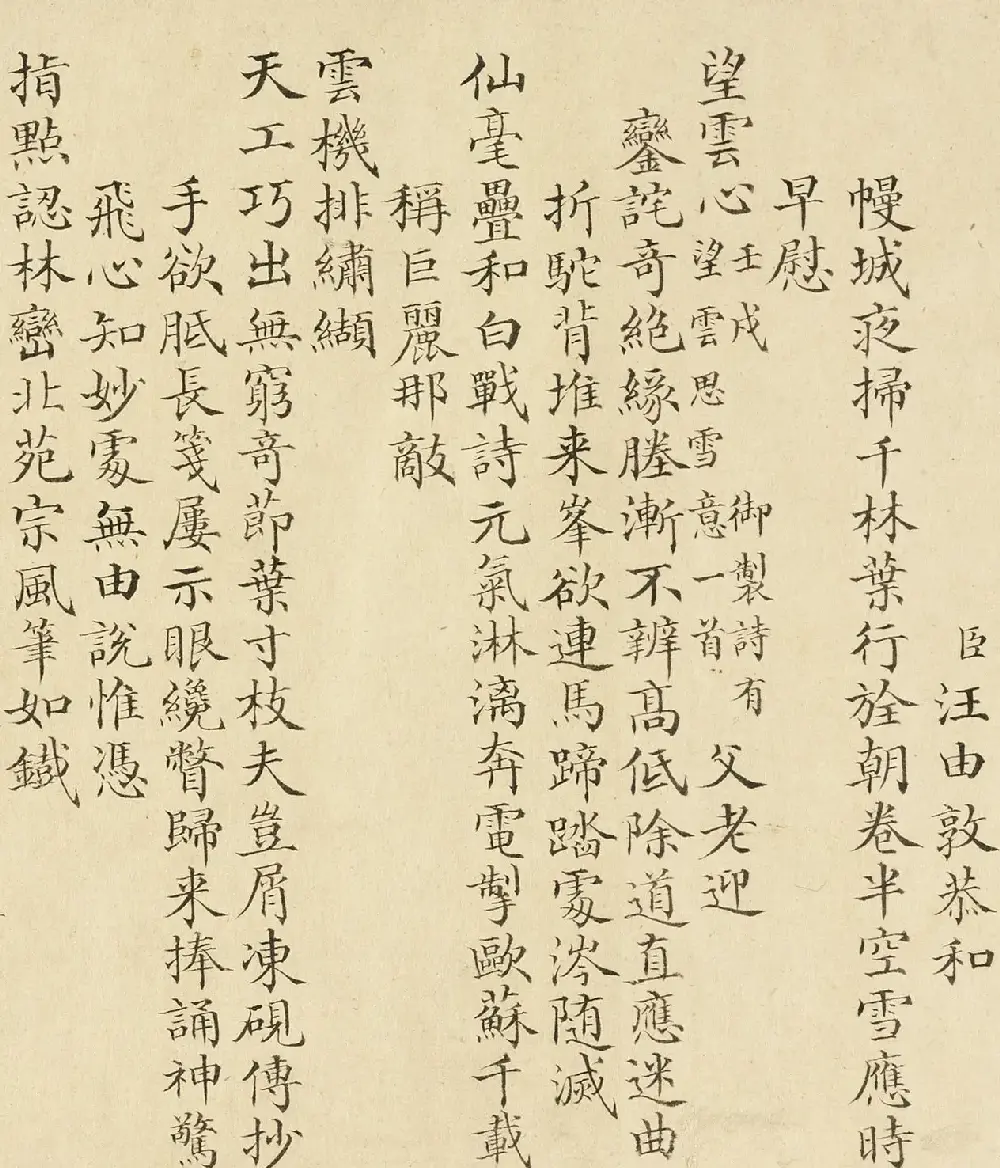 臣汪由敦恭和
幔城夜掃千林葉行旌朝卷半空雪應時
早慰
望雲心壬戌御製詩有望雲思雪意一首父老迎
鑾詫奇絕緣塍漸不辨高低除道直應迷曲
折駝背堆来峯欲連馬蹄踏處涔随滅
仙毫疊和白戰詩元氣淋漓奔電掣歐蘇千載
稱巨麗那敵
雲機排繡纈
天工巧出無窮奇節葉寸枝夫豈屑凍硯傳抄
手欲胝長箋屢示眼纔瞥歸来捧誦神驚
飛心知妙處無由說惟憑
指點認林巒北苑宗風筆如鐵